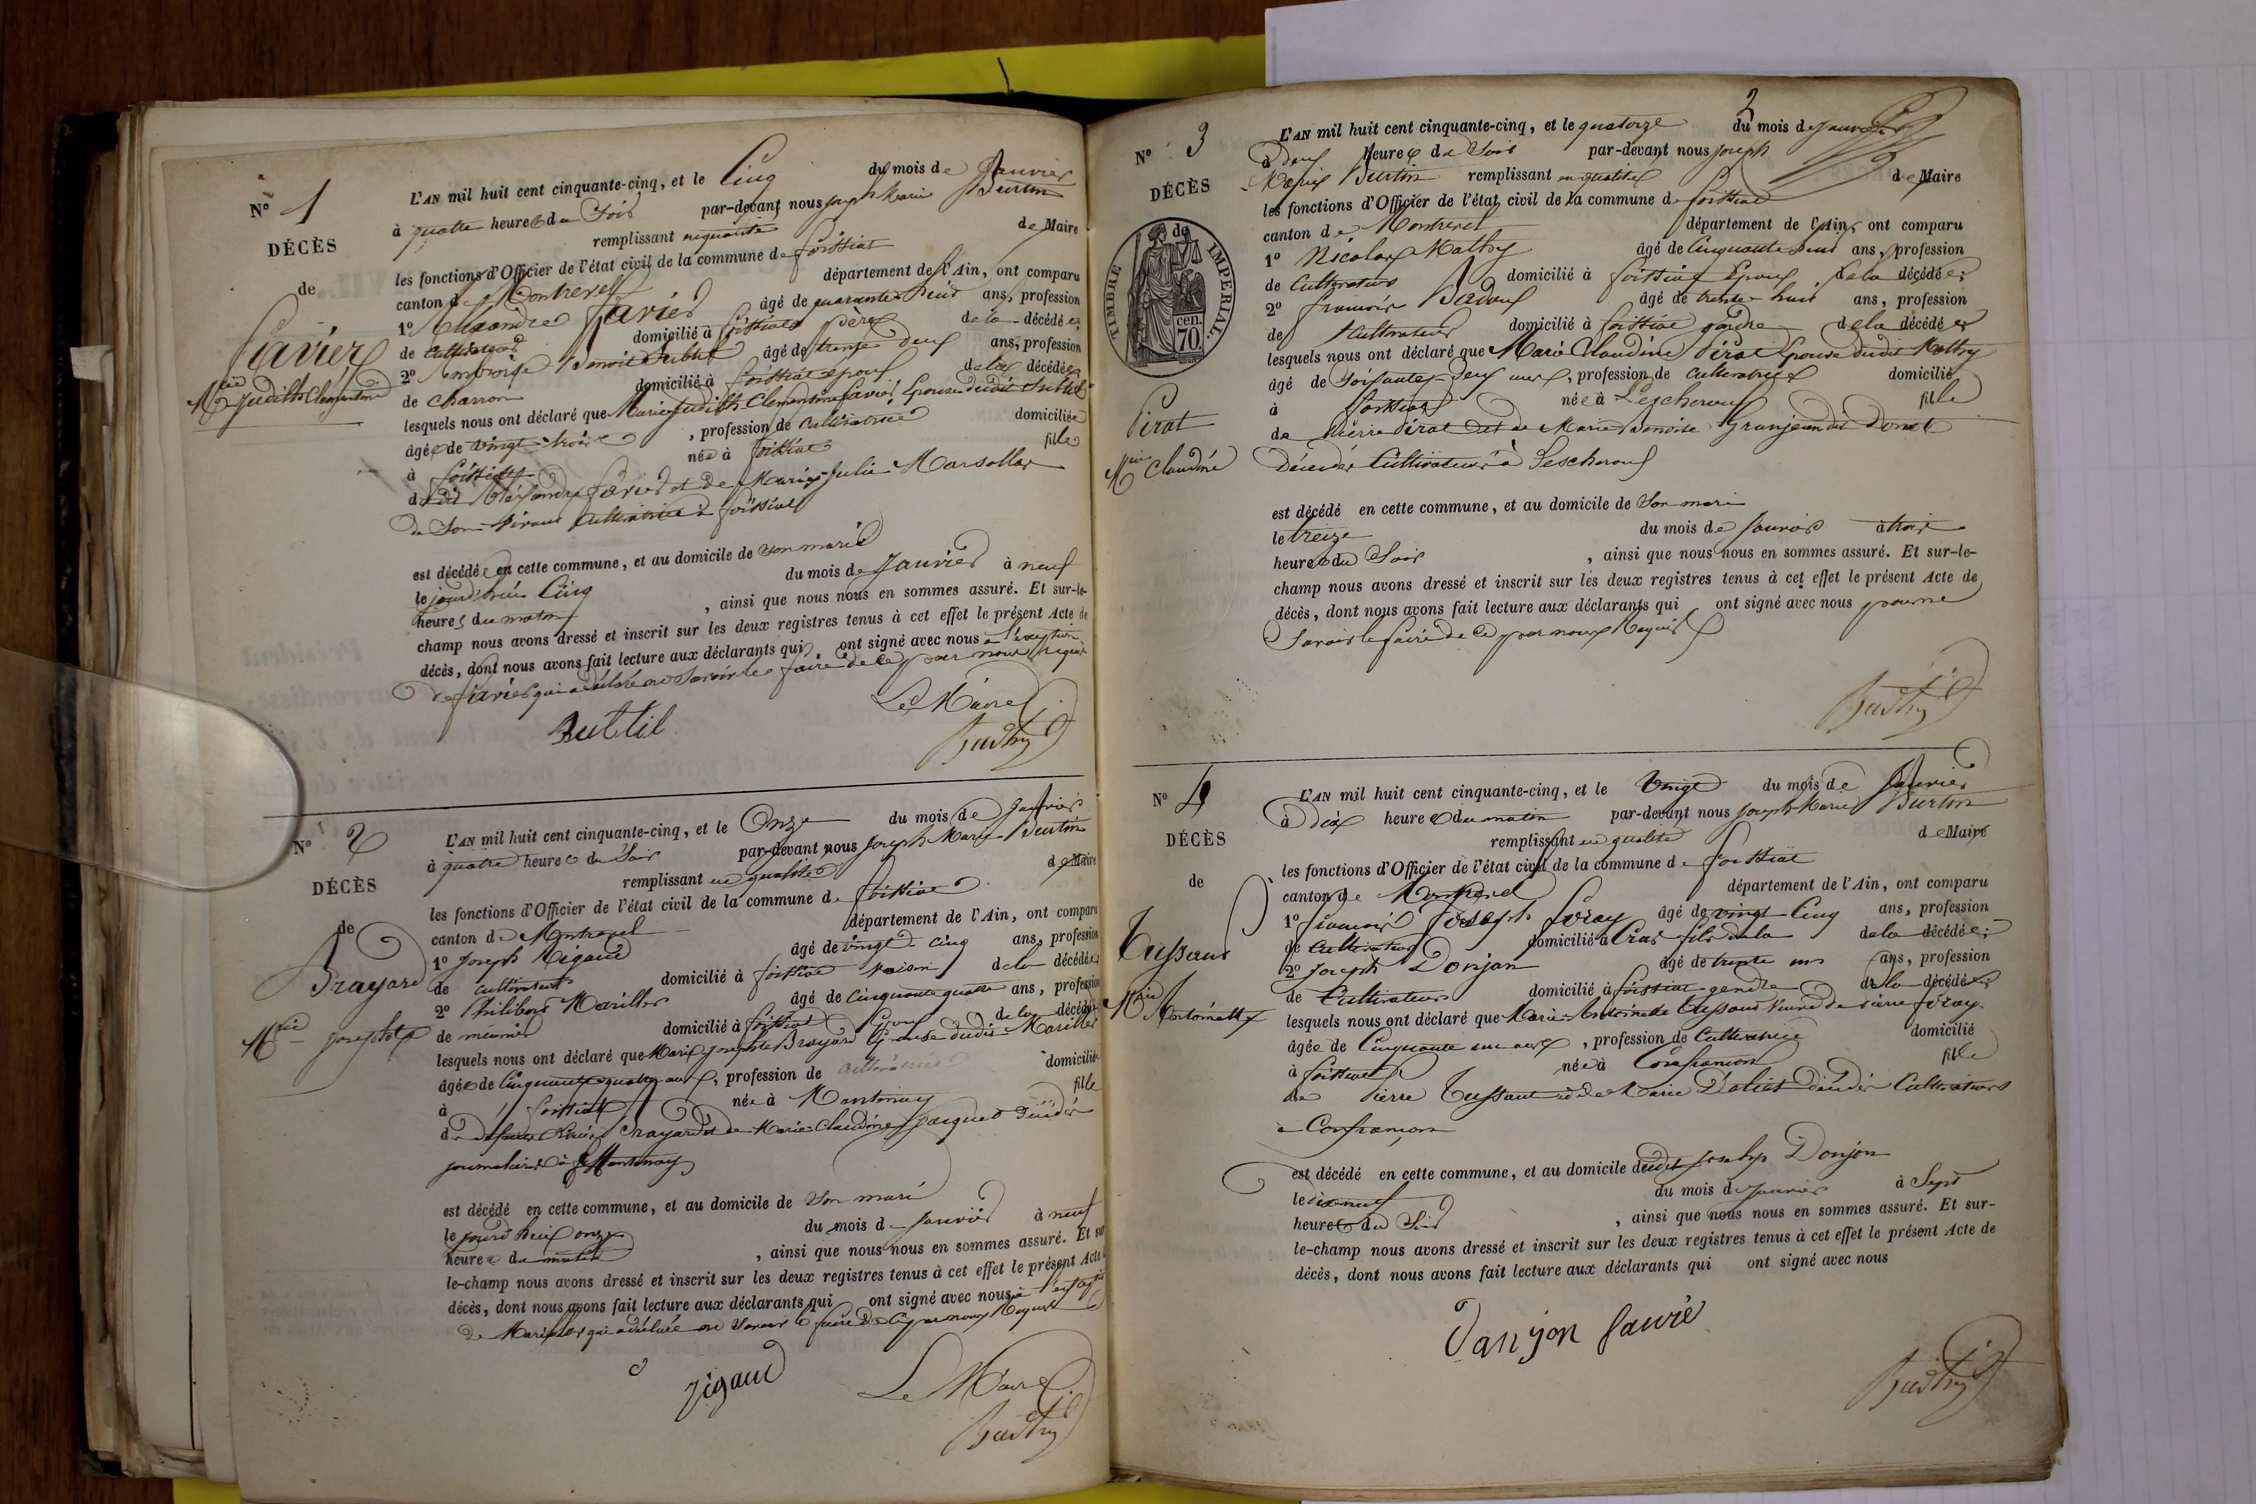 N° 1
DÉCÈS
de
Favier
Mie Judith Clémentine
L'AN mil huit cent cinquante-cinq, et le Cinq du mois de Janvier
à quatre heures du Soir par-devant nous Joseph Marie Burtin
remplissant en qualité de Maire
les fonctions d'Officier de l'état civil de la commune de foissiat
canton de Montrevel département de l'Ain, ont comparu
1° Alexandre favier âgé de quarante huit ans, profession
de cultivateur domicilié à foissiat père de la décédée;
2° Benoit Subtil âgé de trente deux ans, profession
de charron domicilié à foissiat époux de la décédée
lesquels nous ont déclaré que Marie Judith Clémentine favier Epouse dudit Subtil
âgée de vingt trois , profession de cultivatrice domiciliée
à foissiat née à foissiat fille
dudit Alexandre favier et de Marie Julie Marsollar
de Son vivant cultivatrice à foissiat
est décédée en cette commune, et au domicile de son marie
le jourd'hui Cinq du mois de Janvier à neuf
heures du matin , ainsi que nous nous en sommes assuré. Et sur-le-
champ nous avons dressé et inscrit sur les deux registres tenus à cet effet le présent Acte de
décès, dont nous avons fait lecture aux déclarants qui ont signé avec nous à l'exception
de favier qui a déclaré ne Savoir le faire de ce par nous requis
Le Maire
Subtil
N° 2
DÉCÈS
de
Brayard
Mie josephte
L'AN mil huit cent cinquante-cinq, et le Onze du mois de Janvier
à quatre heures du Soir par-devant nous Joseph Marie Burtin
remplissant en qualité de Maire
les fonctions d'Officier de l'état civil de la commune de foissiat
canton de Montrevel département de l'Ain, ont comparu
1° Joseph Rigaud âgé de vingt cinq ans, profession
de cultivateur domicilié à foissiat voisin de la décédée
2° Philibert Mariller âgé de Cinquante quatre ans, profession
de meunier domicilié à foissiat Epoux de la décédée
lesquels nous ont déclaré que Marie josephte Brayard Epouse dudit Mariller
âgée de Cinquante quatre ans, profession de cultivatrice domiciliée
à foissiat née à Mantenay fille
de défunts Brayard et de Marie Claudine Jacquet décédés
journaliers à Mantenay
est décédé en cette commune, et au domicile de Son mari
le jourd'hui onze du mois de Janvier à neuf
heures du matin , ainsi que nous nous en sommes assuré. Et sur
le-champ nous avons dressé et inscrit sur les deux registres tenus à cet effet le présent Acte
décès, dont nous avons fait lecture aux déclarants qui ont signé avec nous à l'exception
de Mariller qui a déclaré ne Savoir le faire de ce par nous Requis
Rigaud
Le Maire
2
N° 3
DÉCÈS
de
TIMBRE IMPERIAL.
70 cen.
Pérat
Mie Claudine
L'AN mil huit cent cinquante-cinq, et le quatorze du mois de Janvier
à deux heures du Soir par-devant nous Joseph
Marie Burtin remplissant en qualité de Maire
les fonctions d'Officier de l'état civil de la commune de foissiat
canton de Montrevel département de l'Ain, ont comparu
1° Nicolas Mathy âgé de Cinquante ans, profession
de Cultivateur domicilié à foissiat Epoux de la décédée;
2° françois âgé de trente-huit ans, profession
de Cultivateur domicilié à foissiat gendre de la décédée
lesquels nous ont déclaré que Marie Claudine Pérat Epouse dudit Mathy
âgé de Soixante-deux ans, profession de cultivatrice domicilié
à foissiat née à Lescheroux fille
de Pierre Pérat et de Marie Benoite Granjean dit Donet
décédés Cultivateurs à Lescheroux
est décédé en cette commune, et au domicile de Son mari
le treize du mois de Janvier à trois
heures du Soir , ainsi que nous nous en sommes assuré. Et sur-le-
champ nous avons dressé et inscrit sur les deux registres tenus à cet effet le présent Acte de
décès, dont nous avons fait lecture aux déclarants qui ont signé avec nous pour ne
Savoir le faire de ce par nous Requis
N° 4
DÉCÈS
de
Tussaud
Mie Antoinette
L'AN mil huit cent cinquante-cinq, et le Vingt du mois de Janvier
à dix heures du matin par-devant nous Joseph Marie Burtin
remplissant en qualité de Maire
les fonctions d'Officier de l'état civil de la commune de foissiat
canton de Montrevel département de l'Ain, ont comparu
1° françois Joseph foray âgé de vingt Cinq ans, profession
de Cultivateur domicilié à Cras fils de la de la décédée;
2° Joseph Donjon âgé de trente un ans, profession
de Cultivateur domicilié à foissiat gendre de la décédée
lesquels nous ont déclaré que Marie Antoinette Tussaud Veuve de pierre foray
âgée de Cinquante un ans , profession de Cultivatrice domicilié
à foissiat née à Confrançon fille
de Pierre Tussaud et de Marie décédés Cultivateurs
à Confrançon
est décédé en cette commune, et au domicile dudit Joseph Donjon
le dix neuf du mois de Janvier à Sept
heures du Soir , ainsi que nous nous en sommes assuré. Et sur-
le-champ nous avons dressé et inscrit sur les deux registres tenus à cet effet le présent Acte de
décès, dont nous avons fait lecture aux déclarants qui ont signé avec nous
Danjon